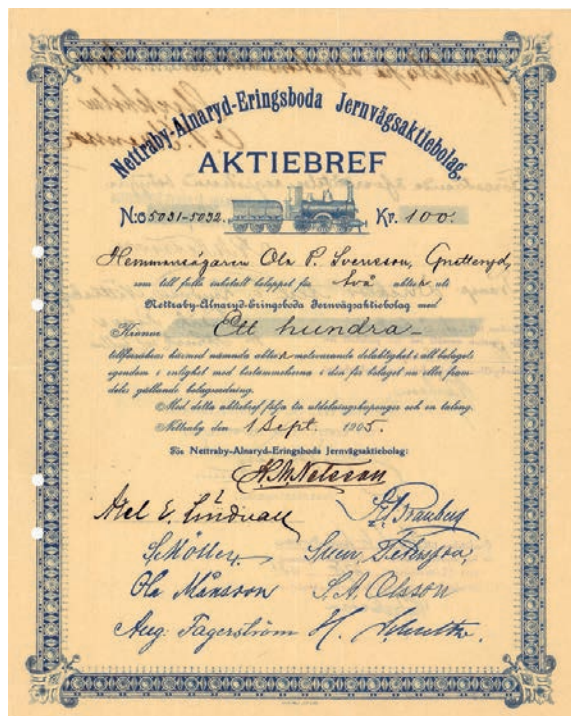 Nettraby-Alnaryd-Eringsboda Jernvägsaktiebolag.
AKTIEBREF
N:o 5031-5032. Kr. 100.
Hemmansägaren Ola P. Svensson, Gnetteryd,
som till fullo inbetalt beloppet för två aktier uti
Nettraby-Alnaryd-Eringsboda Jernvägsaktiebolag med
Kronor Ett hundra
tillförsäkras härmed nämnda aktier motsvarande delaktighet i all bolagets
egendom i enlighet med bestämmelserna i den för bolaget nu eller fram-
deles gällande bolagsordning.
Med detta aktiebref följa tio utdelningskuponger och en talong.
Nettraby den 1 Sept. 1905.
För Nettraby-Alnaryd-Eringsboda Jernvägsaktiebolag:
Axel E. Lindvall
S. Möller Sven Petersson,
Ola Månsson S. A. Olsson
Aug: Fagerström